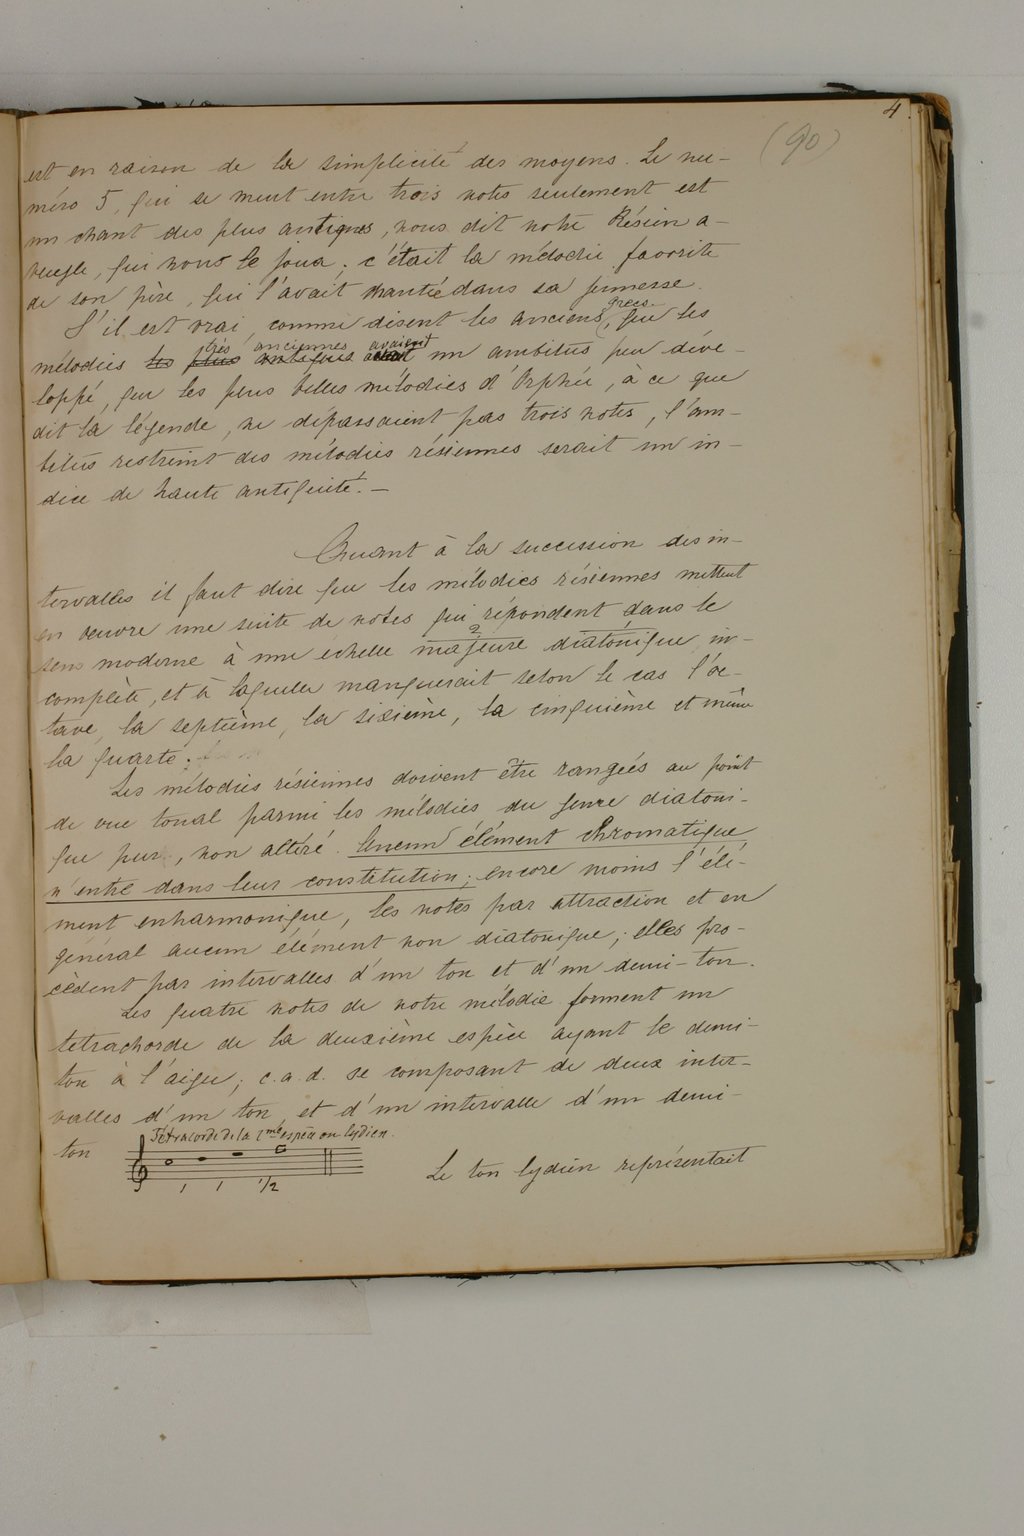 4.
(90)
est en raison de la simplicité des moyens. Le nu-
méro 5, qui se meut entre trois notes seulement est
un chant des plus antiques, nous dit notre Résien a-
veugle, qui nous le joua; c'était la mélodie favorite
de son père, qui l'avait chantée dans sa jeunesse.
S'il est vrai, comme disent les anciens grecs, que les
mélodies les plus antiques très anciennes avaient un ambitus peu déve-
loppé, que les plus belles mélodies d'Orphée, à ce que
dit la légende, ne dépassaient pas trois notes, l'am-
bitus restreint des mélodies résiennes serait un in-
dice de haute antiquité. —
Quant à la succession des in-
tervalles il faut dire que les mélodies résiennes mettent
en oeuvre une suite de notes qui répondent dans le
sens moderne à une échelle majeure ? diatonique in-
complète, et à laquelle manquerait selon le cas l'oc-
tave, la septième, la sixième, la cinquième et même
la quarte.
Les mélodies résiennes doivent être rangées au point
de vue tonal parmi les mélodies du genre diatoni-
que pur, non altéré. Aucun élément chromatique
n'entre dans leur constitution; encore moins l'élé-
ment enharmonique, les notes par attraction et en
général aucun élément non diatonique; elles pro-
cèdent par intervalles d'un ton et d'un demi-ton.
Les quatre notes de notre mélodie forment un
tetrachorde de la deuxième espèce ayant le demi-
ton à l'aigu; c.a.d. se composant de deux inter-
valles d'un ton et d'un intervalle d'un demi-
ton
Tétracorde de la 2me espèce ou lydien.
1 1 1/2
Le ton lydien représentait